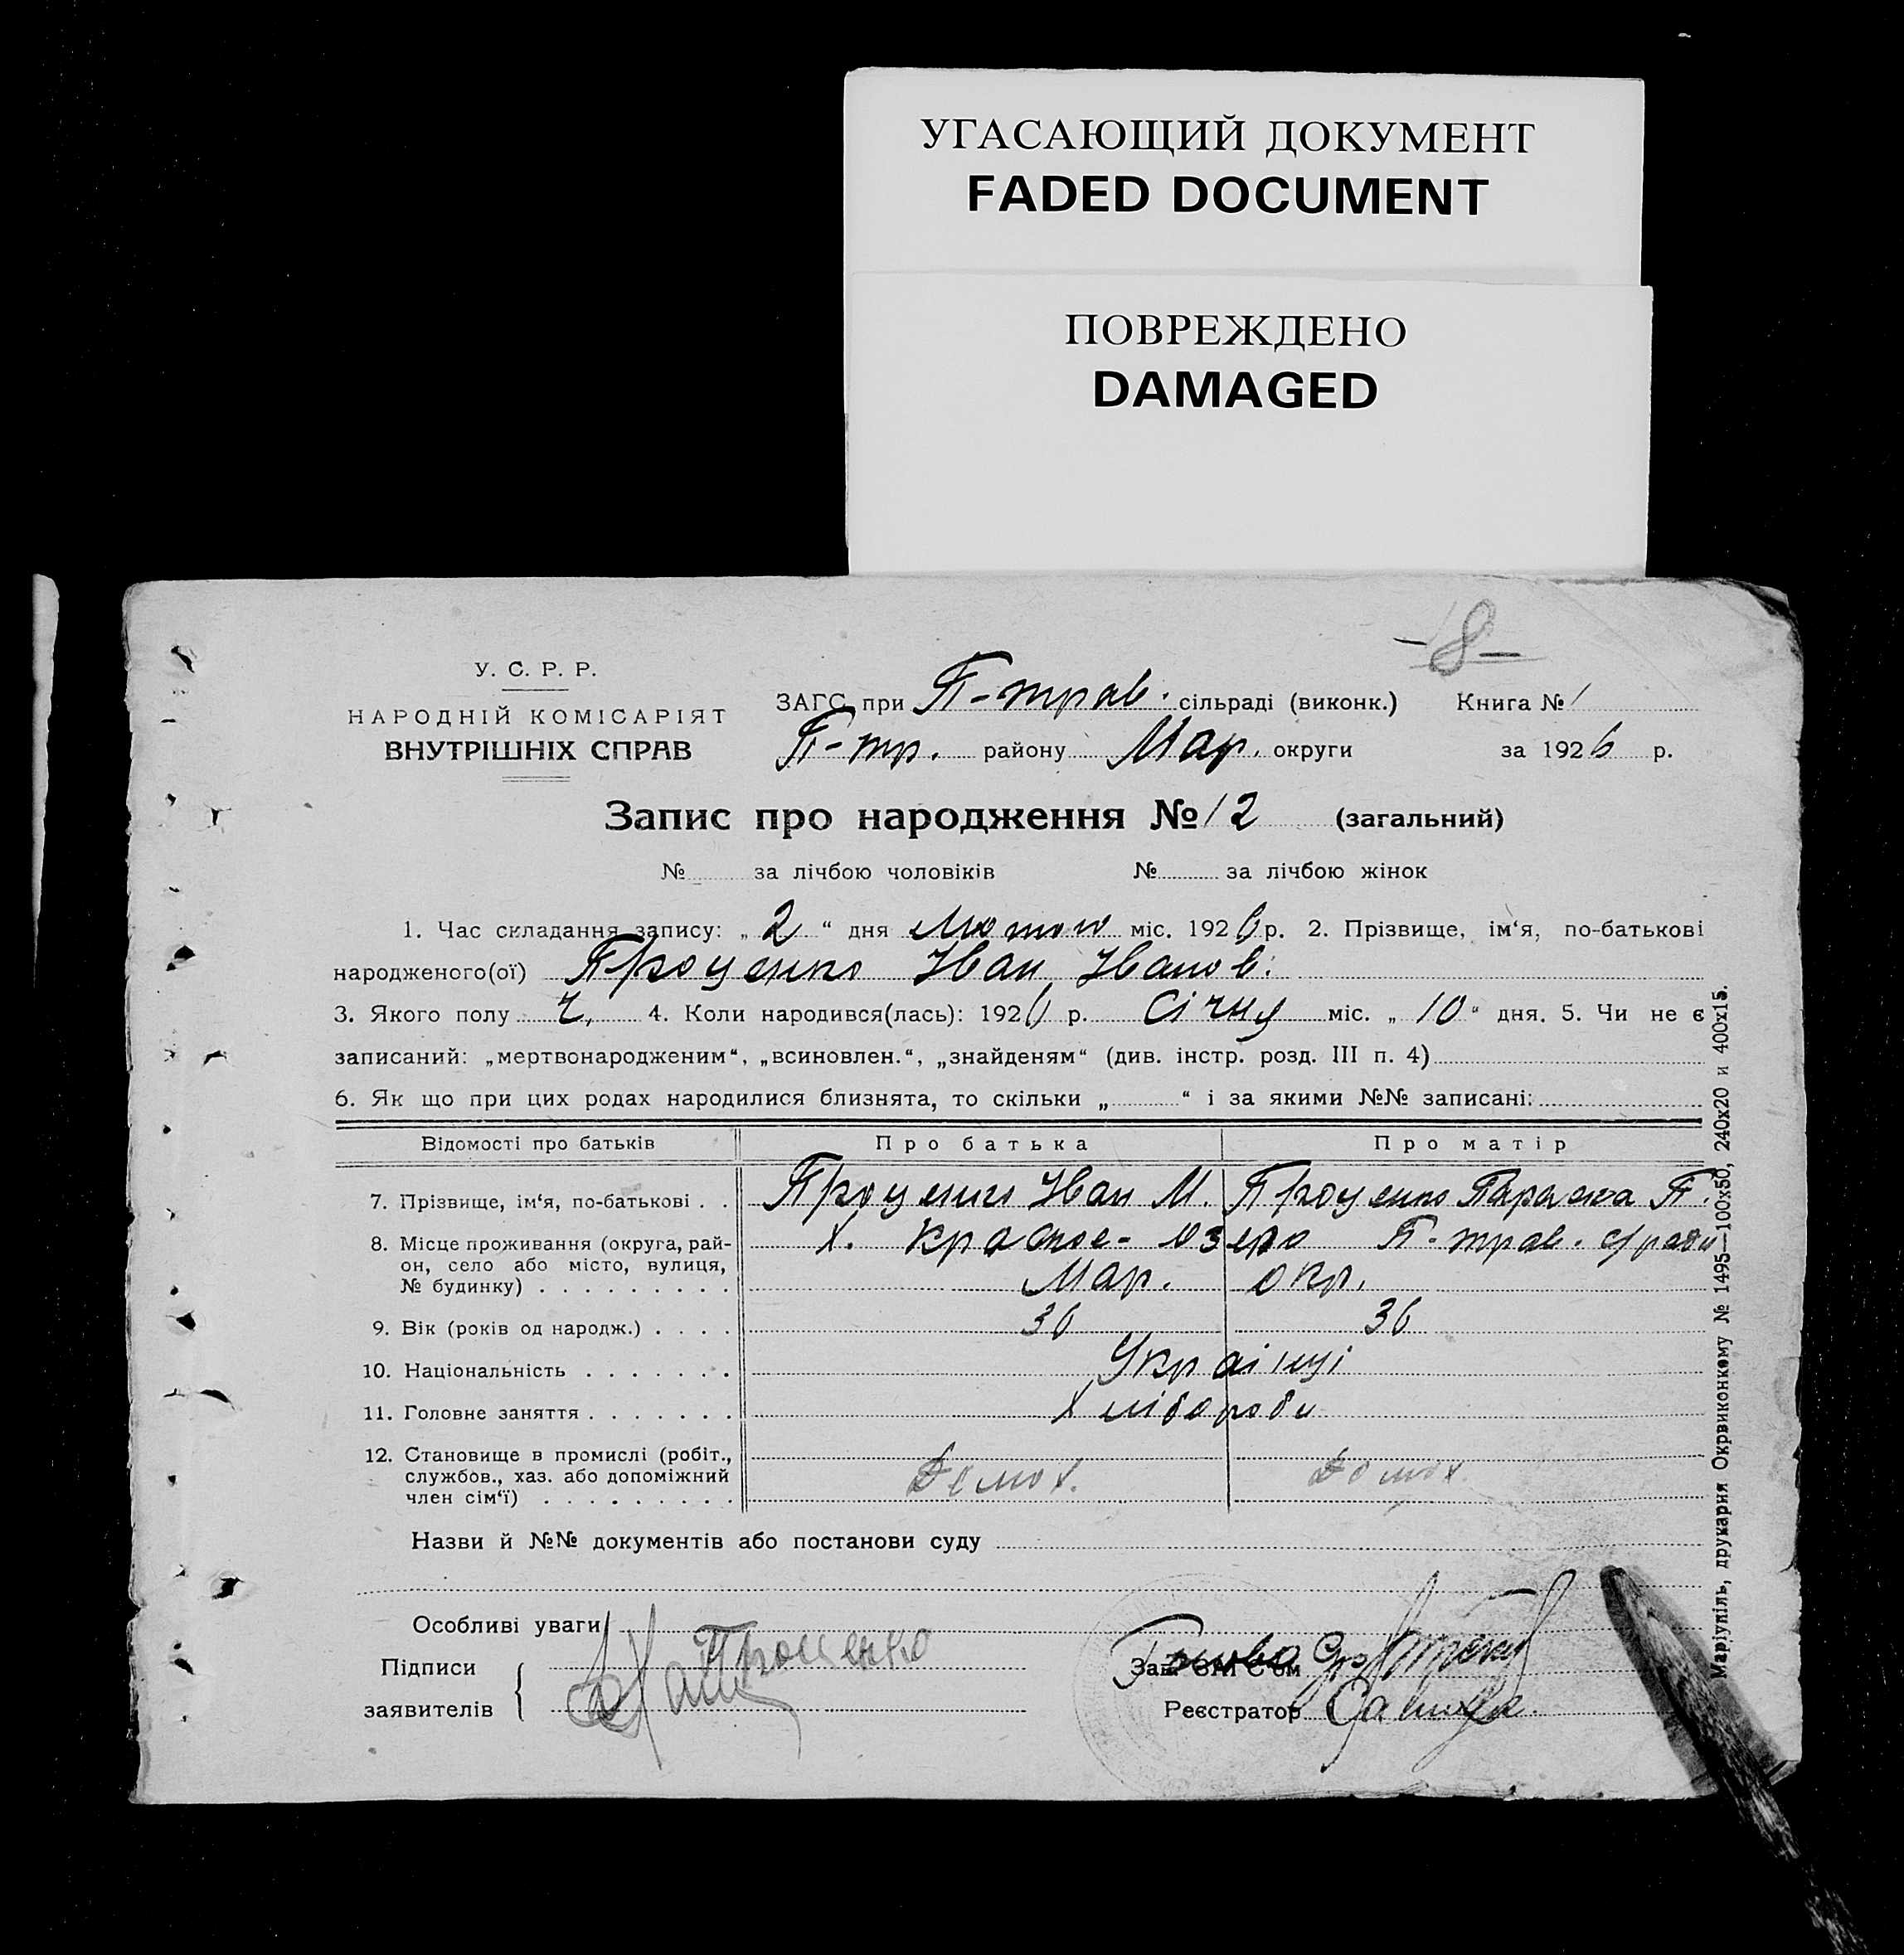 УГАСАЮЩИЙ ДОКУМЕНТ
FADED DOCUMENT
ПОВРЕЖДЕНО
DAMAGED
-8-
У. С. Р. Р.
НАРОДНІЙ КОМІСАРІЯТ
ВНУТРІШНІХ СПРАВ
ЗАГС при П-трав. сільраді (виконк.) Книга № 1
П-тр. району Мар. округи за 1926 р.
Запис про народження № 12 (загальний)
№ за лічбою чоловіків № за лічбою жінок
1. Час складання запису: „2“ дня лютого міс. 1926 р. 2. Прізвище, ім‘я, по-батькові
народженого(ої) Проценко Іван Іванов.
3. Якого полу ч. 4. Коли народився(лась): 1926 р. січня міс. „10“ дня. 5. Чи не є
записаний: „мертвонародженим“, „всиновлен.“, „знайденям“ (див. інстр. розд. III п. 4)
6. Як що при цих родах народилися близнята, то скільки „ “ і за якими №№ записані:
Відомості про батьків Про батька Про матір
7. Прізвище, ім‘я, по-батькові . . Проценко Іван М. Проценко Параска П.
8. Місце проживання (округа, рай-
он, село або місто, вулиця,
№ будинку) . . . . . . . . .
х. Красное-озеро П-трав. с/ради
Мар. окр.
9. Вік (років од народж.) . . . . 36 36
10. Національність . . . . . . . Українці
11. Головне заняття . . . . . . . Хлібороби
12. Становище в промислі (робіт.,
службов., хаз. або допоміжний
член сім‘ї) . . . . . . . . .
Домох. Домох.
Назви й №№ документів або постанови суду
Особливі уваги
Підписи
заявителів
Проценко
Зав. ЗАГС‘ом
Голова
Реєстратор
Маріупіль, друкарня Окрвиконкому № 1495—100х50, 240х20 и 400х15.